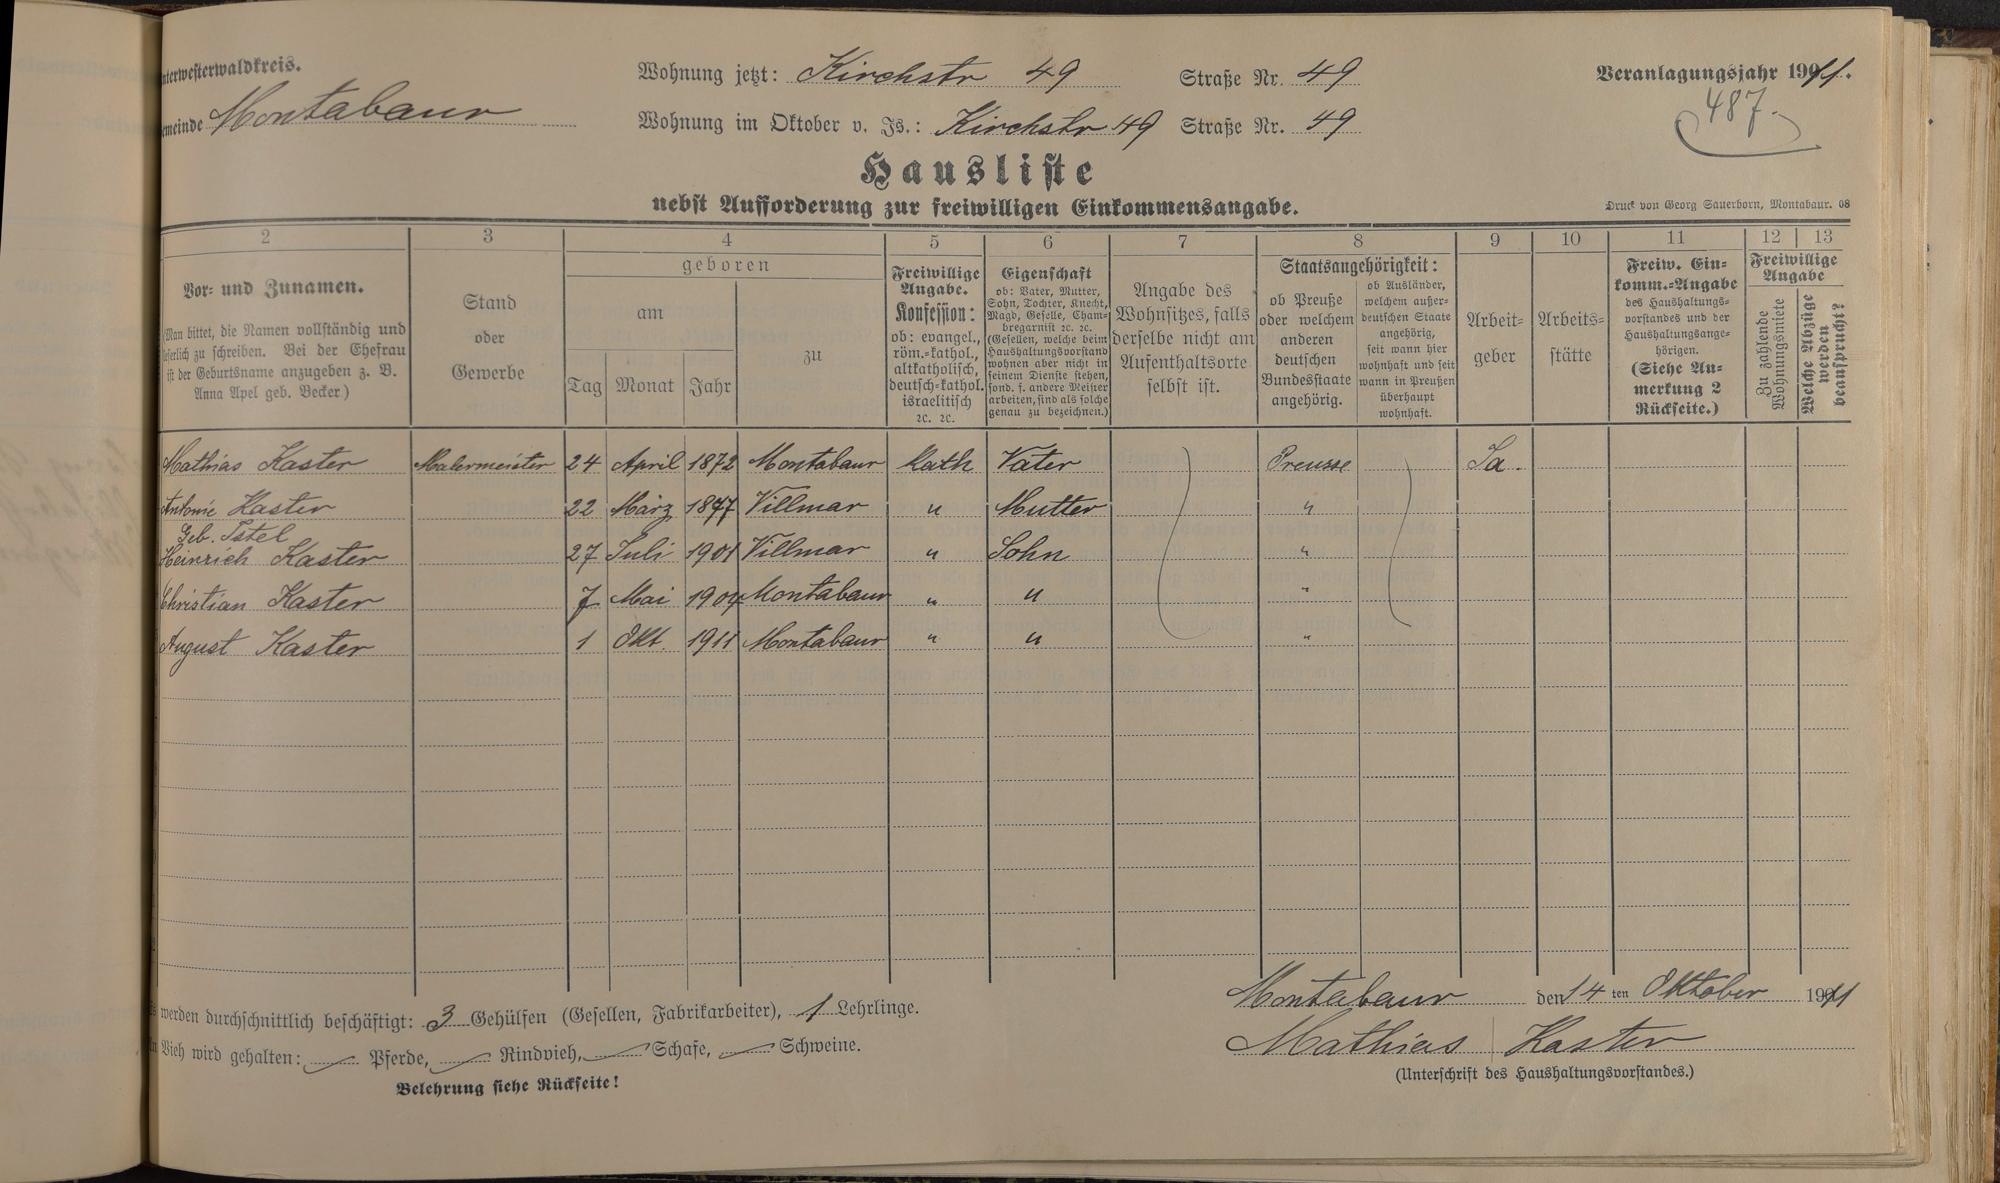 nterwesterwaldkreis.
Wohnung jetzt: Kirchstr 49 Straße Nr. 49
Veranlagungsjahr 1911.
emeinde Montabaur
Wohnung im Oktober v. Js.: Kirchstr 49 Straße Nr. 49
487.
Hausliste
nebst Aufforderung zur freiwilligen Einkommensangabe.
Druck von Georg Sauerborn, Montabaur. 08
2 3 4 5 6 7 8 9 10 11 12 13
Vor- und Zunamen.
(Man bittet, die Namen vollständig und
eserlich zu schreiben. Bei der Ehefrau
ist der Geburtsname anzugeben z. B.
Anna Apel geb. Becker.)
Stand
oder
Gewerbe
geboren
am
Tag Monat Jahr
zu
Freiwillige
Angabe.
Konfession:
ob: evangel.,
röm.-kathol.,
altkatholisch,
deutsch-kathol.
israelitisch
ꝛc. ꝛc.
Eigenschaft
ob: Vater, Mutter,
Sohn, Tochter, Knecht,
Magd, Geselle, Cham-
bregarnist ꝛc. ꝛc.
(Gesellen, welche beim
Haushaltungsvorstand
wohnen aber nicht in
seinem Dienste stehen,
sond. f. andere Meister
arbeiten, sind als solche
genau zu bezeichnen.)
Angabe des
Wohnsitzes, falls
derselbe nicht am
Aufenthaltsorte
selbst ist.
Staatsangehörigkeit:
ob Preuße
oder welchem
anderen
deutschen
Bundesstaate
angehörig.
ob Ausländer,
welchem außer-
deutschen Staate
angehörig,
seit wann hier
wohnhaft und seit
wann in Preußen
überhaupt
wohnhaft.
Arbeit-
geber
Arbeits-
stätte
Freiw. Ein-
komm.-Angabe
des Haushaltungs-
vorstandes und der
Haushaltungsange-
hörigen.
(Siehe An-
merkung 2
Rückseite.)
Freiwillige
Angabe
Zu zahlende
Wohnungsmiete
Welche Abzüge
werden
beansprucht?
Mathias Kaster Malermeister 24 April 1872 Montabaur kath Vater Preusse Ja.
Antonie Kaster 22 März 1877 Villmar " Mutter "
Geb. Istel
Heinrich Kaster 27 Juli 1901 Villmar " Sohn "
Christian Kaster 7 Mai 1904 Montabaur " " "
August Kaster 1 Okt. 1911 Montabaur " " "
Montabaur den 14 ten Oktober 1911
s werden durchschnittlich beschäftigt: 3 Gehülfen (Gesellen, Fabrikarbeiter), 1 Lehrlinge.
Mathias Kaster
n Vieh wird gehalten: Pferde, Rindvieh, Schafe, Schweine.
(Unterschrift des Haushaltungsvorstandes.)
Belehrung siehe Rückseite!